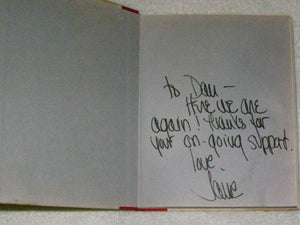 To Dan –
Here we are
again! Thanks for
your on-going support.
love.
Jane